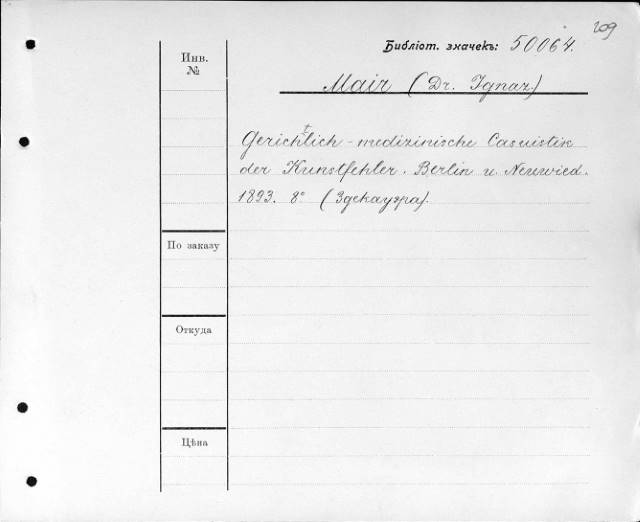 209
Библіот. значекъ: 50064.
Инв.
№
Mair (Dr. Ignaz)
Gerichtlich-medizinische Casuistik
der Kunstfehler. Berlin u. Neuwied.
1893. 8° (Здекауэра).
По заказу
Откуда
Цѣна